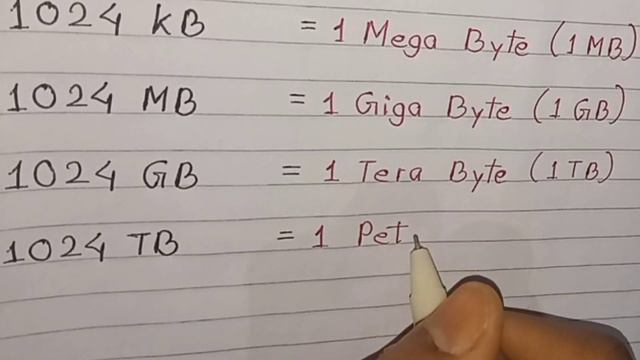 1024 KB = 1 Mega Byte (1 MB)
1024 MB = 1 Giga Byte (1 GB)
1024 GB = 1 Tera Byte (1 TB)
1024 TB = 1 Pet